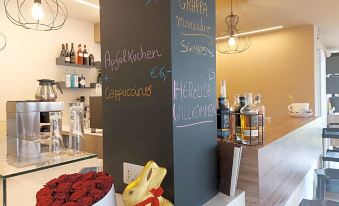 Apfelkuchen
€6,-
Cappuccino
GRAPPA
monovitigno
SCHNAPS
HERZLICH
WILLKOMMEN